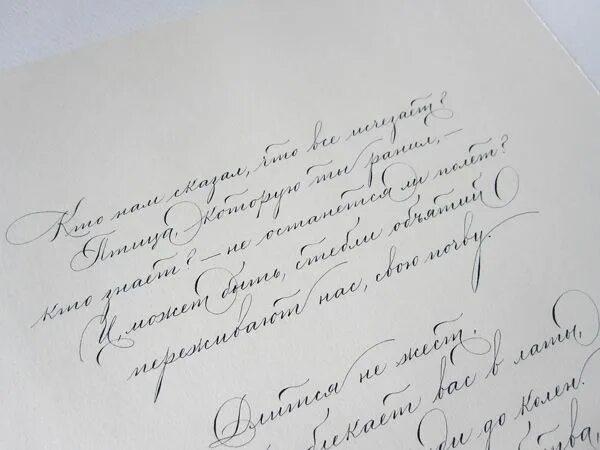 Кто нам сказал, что все исчезает?
Птица, которую ты ранил, —
кто знает? — не останется ли полёт?
И, может быть, стебли объятий
переживают нас, свою почву.
Длится не жест,
облекает вас в латы,
до колен.